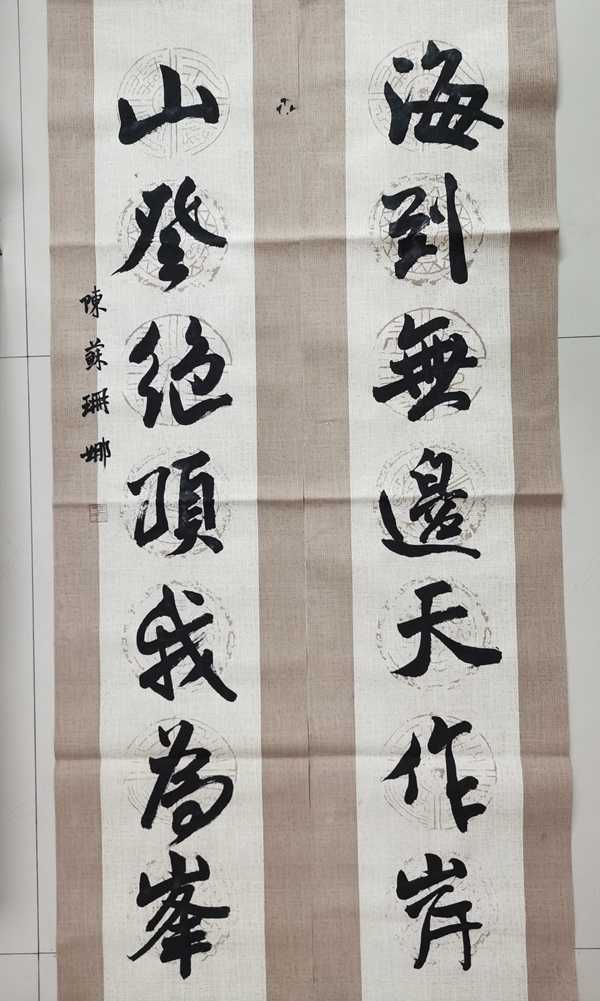 海到無邊天作岸
山登絶頂我為峯
陳蘇珊娜